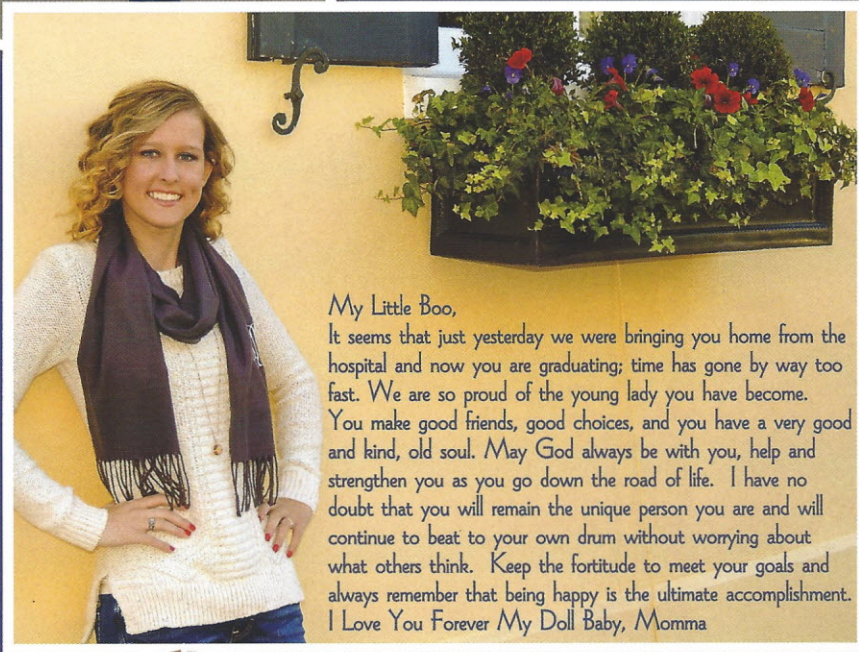 My Little Boo,
It seems that just yesterday we were bringing you home from the
hospital and now you are graduating; time has gone by way too
fast. We are so proud of the young lady you have become.
You make good friends, good choices, and you have a very good
and kind, old soul. May God always be with you, help and
strengthen you as you go down the road of life. I have no
doubt that you will remain the unique person you are and will
continue to beat to your own drum without worrying about
what others think. Keep the fortitude to meet your goals and
always remember that being happy is the ultimate accomplishment.
I Love You Forever My Doll Baby, Momma